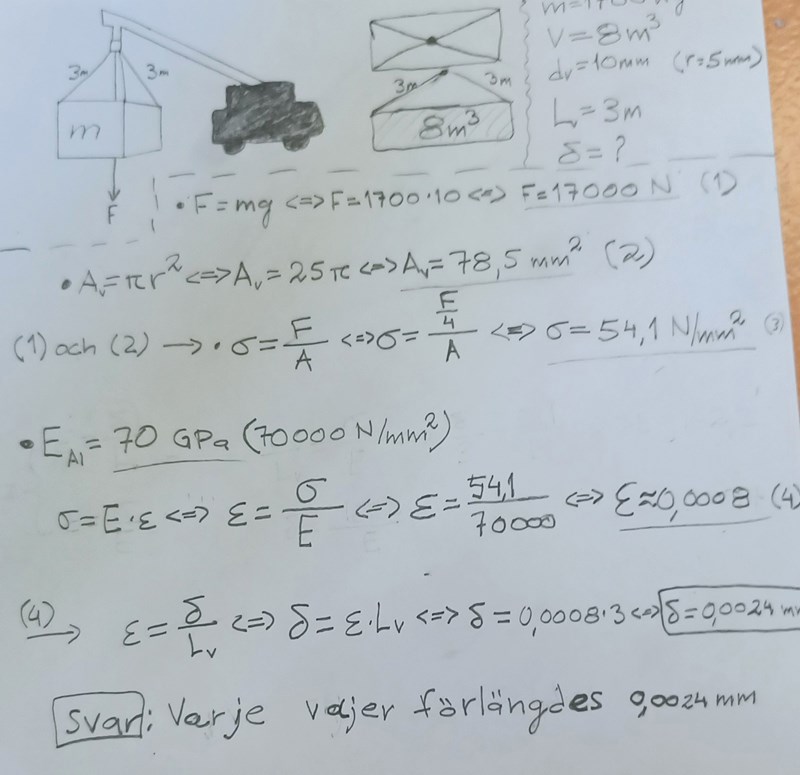 V=8m³
dᵥ=10mm (r=5mm)
L=3m
δ=?
3m 3m
m
F
3m 3m
8m³
• F=mg <=> F=1700·10 <=> F=17000 N (1)
• Aᵥ=πr² <=> Aᵥ=25π <=> Aᵥ=78,5 mm² (2)
(1) och (2) → • σ=F/A <=> σ=(F/4)/A <=> σ=54,1 N/mm² (3)
• E_Al=70 GPa (70000 N/mm²)
σ=E·ε <=> ε=σ/E <=> ε=54,1/70000 <=> ε≈0,0008 (4)
(4) → ε=δ/Lᵥ <=> δ=ε·Lᵥ <=> δ=0,0008·3 <=> δ=0,0024 mm
Svar: Varje vajer förlängdes 0,0024 mm